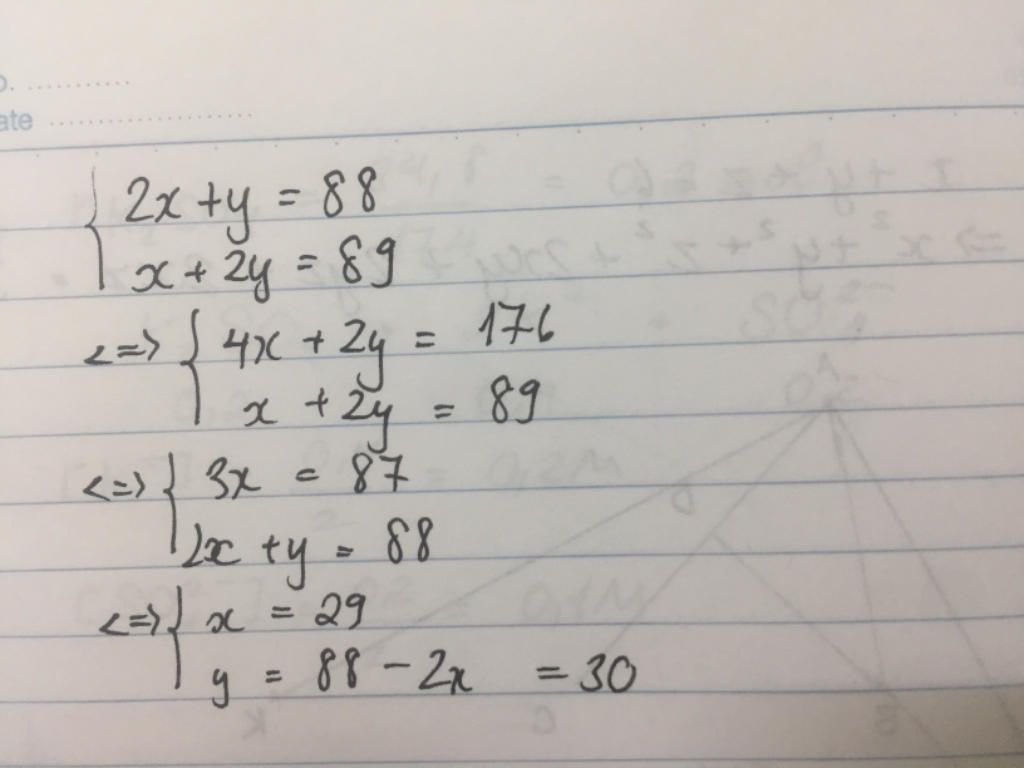 ate
2x + y = 88
x + 2y = 89
<=> 4x + 2y = 176
x + 2y = 89
<=> 3x = 87
2x + y = 88
<=> x = 29
y = 88 - 2x = 30